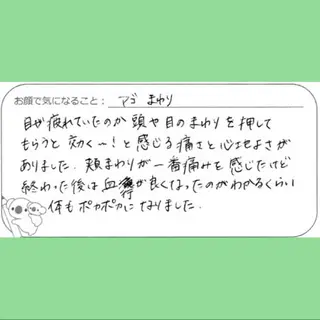 お顔で気になること: アゴまわり
目が疲れていたのか頭や目のまわりを押して
もらうと効く〜!と感じる痛さと心地よさが
ありました。頬まわりが一番痛みを感じたけど
終わった後は血行が良くなったのがわかるくらい
体もポカポカになりました。